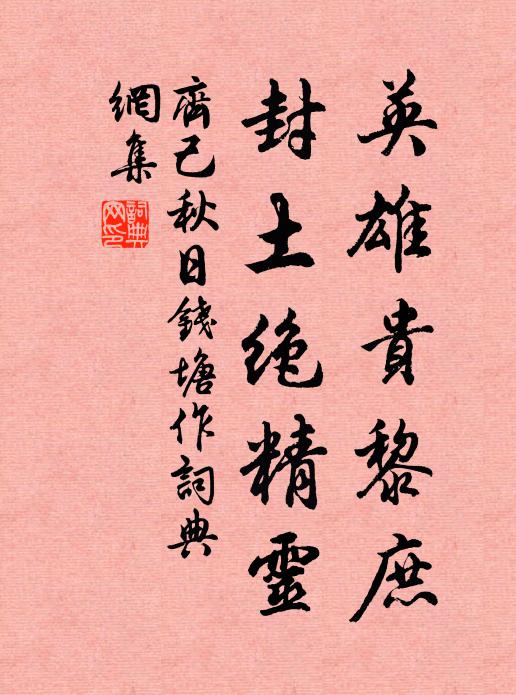 英雄貴黎庶
封土絶精靈
齊己秋日錢塘作詞典
網集
詞典
网印